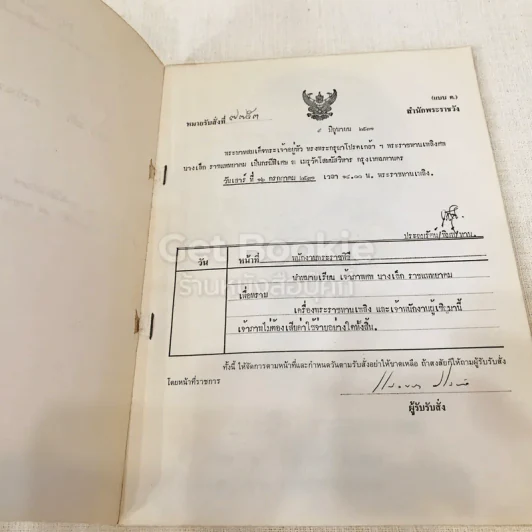 (แบบ ค.)
หมายรับสั่งที่
สำนักพระราชวัง
มิถุนายน ๒๕๓๓
พระบาทสมเด็จพระเจ้าอยู่หัว ทรงพระกรุณาโปรดเกล้า ฯ พระราชทานเพลิงศพ
นางเจ็ก ราชแพทยาคม เป็นกรณีพิเศษ ณ เมรุวัดโสมนัสวิหาร กรุงเทพมหานคร
เวลา ๑๘.๐๐ น. พระราชทานเพลิง.
Get Bookie
ร้านหนังสือบุคกี้
วัน หน้าที่ พนักงานพระราชพิธี
นำหมายเรียน เจ้าภาพศพ นางเจ็ก ราชแพทยาคม
เพื่อทราบ
เครื่องพระราชทานเพลิง และเจ้าพนักงานผู้เชิญมานี้
เจ้าภาพไม่ต้องเสียค่าใช้จ่ายอย่างใดทั้งสิ้น.
ทั้งนี้ ให้จัดการตามหน้าที่และกำหนดวันตามรับสั่งอย่าให้ขาดเหลือ ถ้าสงสัยก็ให้ถามผู้รับรับสั่ง
โดยหน้าที่ราชการ
ผู้รับรับสั่ง